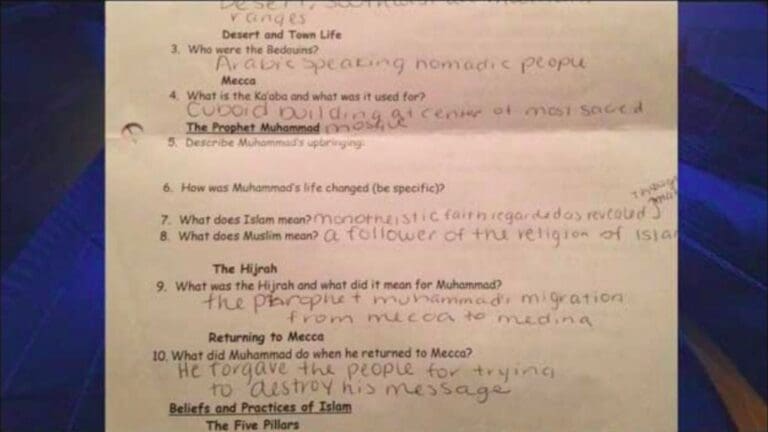 Desert, 
ranges
Desert and Town Life
3. Who were the Bedouins?
Arabic speaking nomadic people
Mecca
4. What is the Ka'aba and what was it used for?
Cuboid building at center of most sacred
The Prophet Muhammad mosque
5. Describe Muhammad's upbringing:
6. How was Muhammad's life changed (be specific)?
through
7. What does Islam mean? monotheistic faith regarded as revealed
8. What does Muslim mean? a follower of the religion of Islam
The Hijrah
9. What was the Hijrah and what did it mean for Muhammad?
the prophet muhammad's migration
from mecca to medina
Returning to Mecca
10. What did Muhammad do when he returned to Mecca?
He forgave the people for trying
to destroy his message
Beliefs and Practices of Islam
The Five Pillars